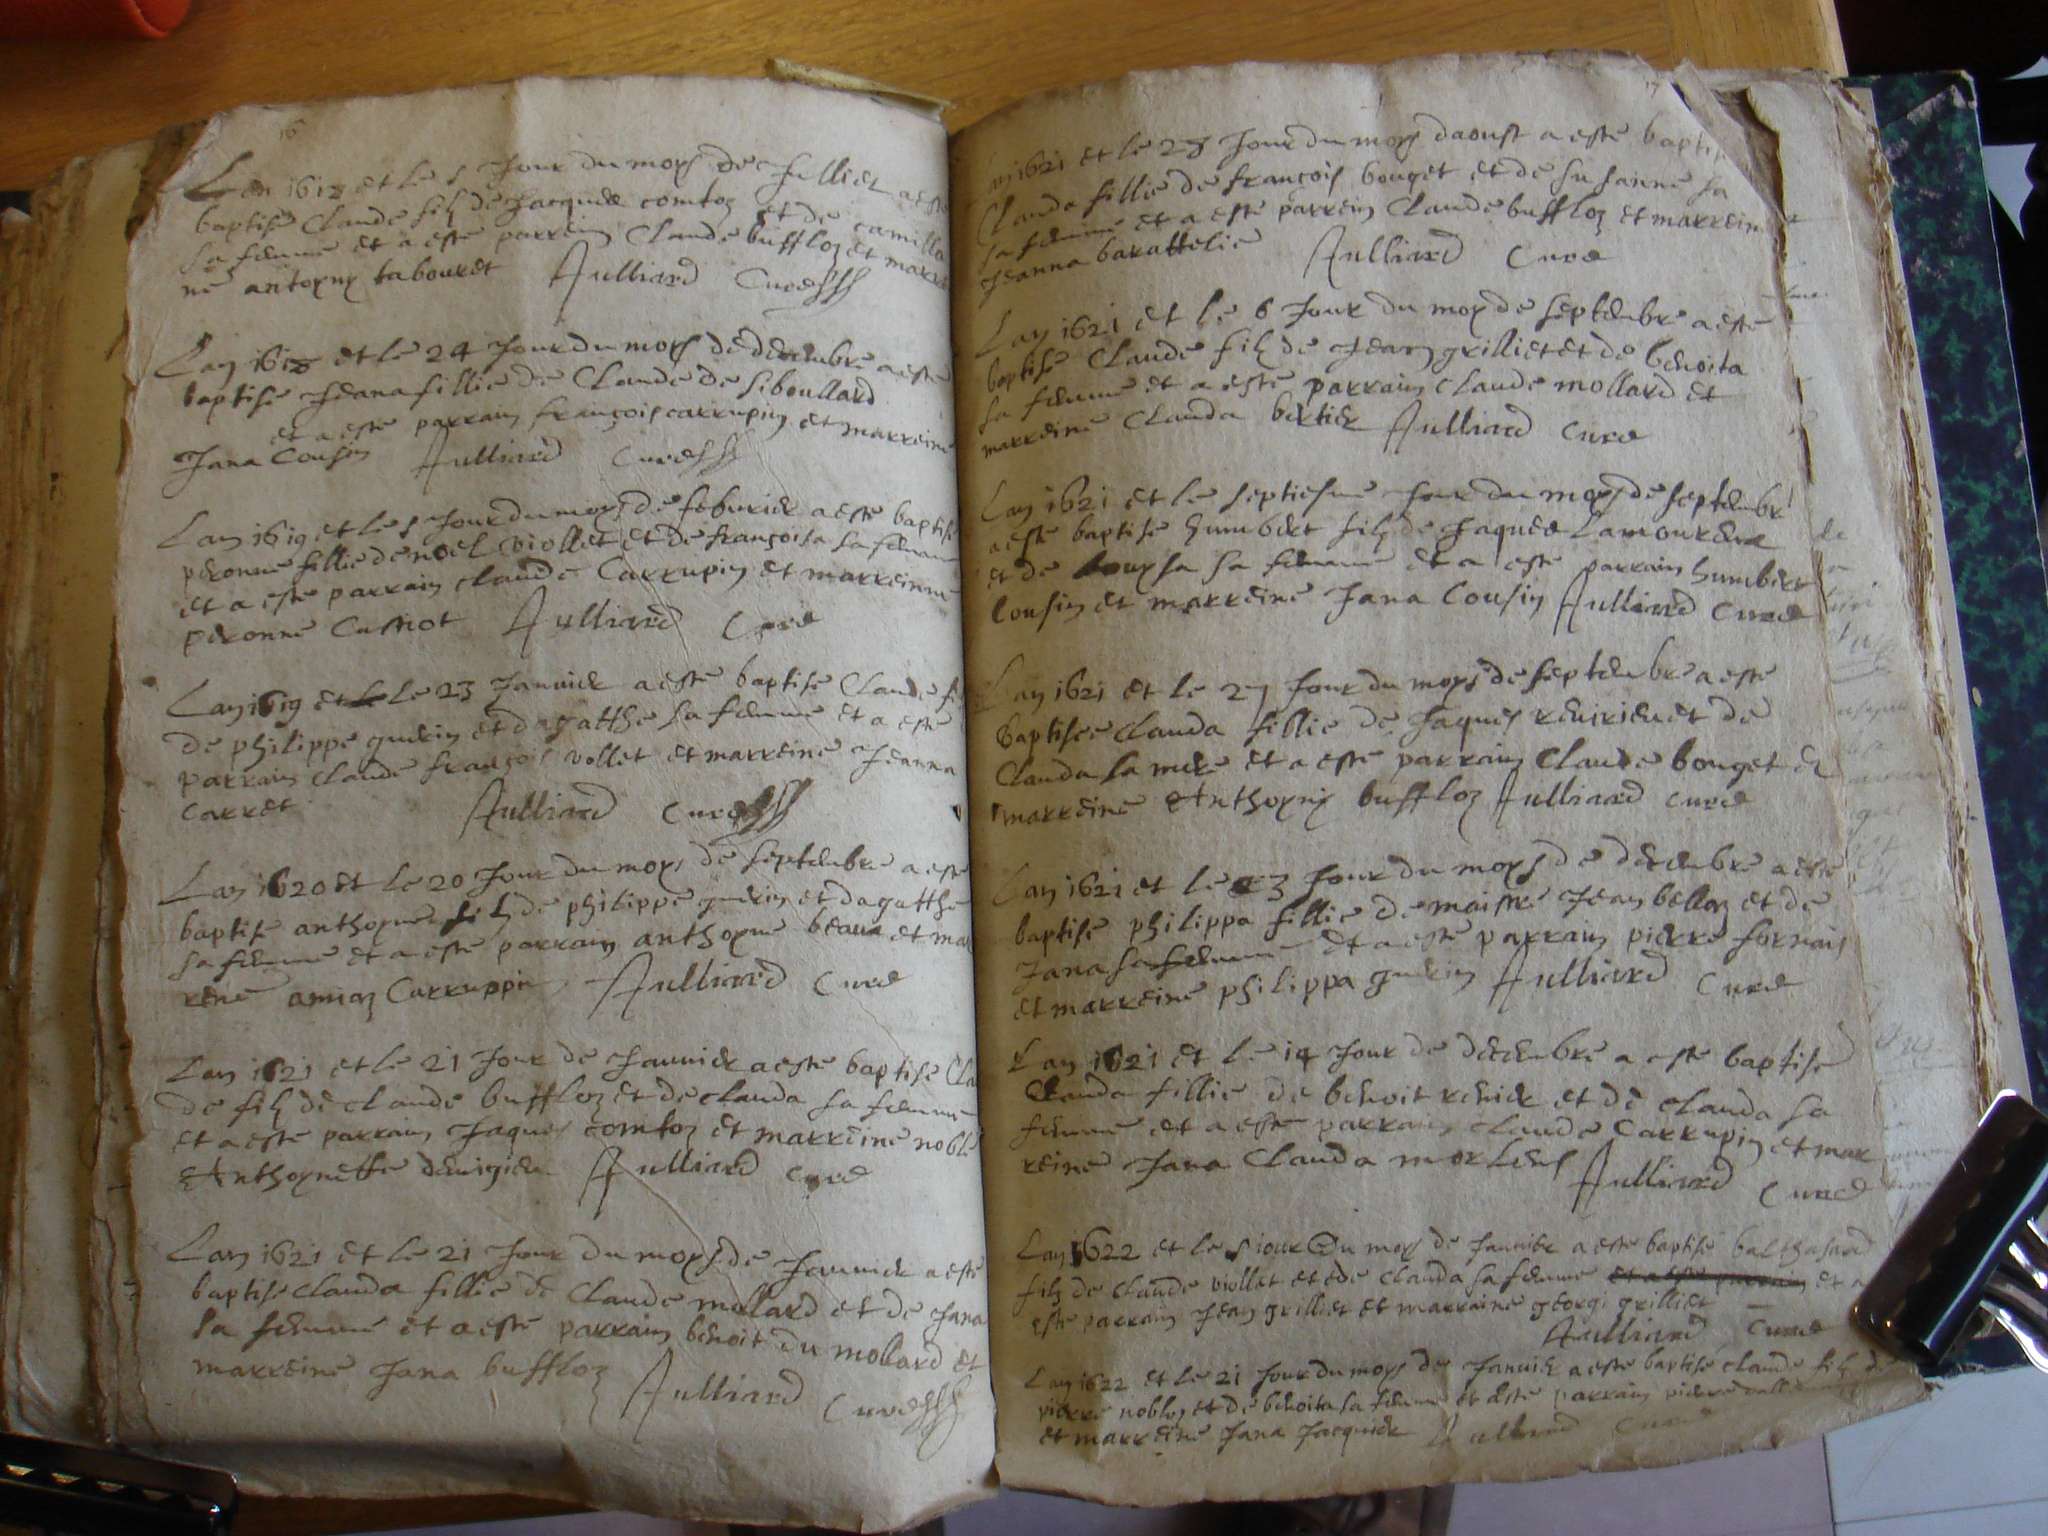 16
Lan 1618 et le 5 Jour du moys de Julliet a este
baptise Claude filz de Jacques comtoz et de camilla
sa femme et a este parrein Claude buffloz et marrei
ne antoyny tabouret Julliard Cure
Lan 1618 et le 24 Jour du moys de decembre a este
baptise Jeana fillie de Claude de siboullard
et a este parrain françois carrupin et marreine
Jana Cousin Julliard Cure
Lan 1619 et le 5 Jour du moys de feburier a este baptise
peronne fillie de noel viollet et de françoisa sa femme
et a este parrain claude Carrupin et marreinne
peronne Cussiot Julliard Cure
Lan 1619 et le 23 Januier a este baptise Claude
de philippe guerin et dagatthe sa femme et a este
parrain Claude françois vollet et marreine Jeanna
Carret Julliard Cure
Lan 1620 et le 20 Jour du moys de septembre a este
baptise anthoyne filz de philippe guerin et dagatthe
sa femme et a este parrain anthoyne beaux et mar
rene amiaz Carruppin Julliard Cure
Lan 1621 et le 21 Jour de Januier a este baptise Clau
de filz de claude buffloz et de clauda sa femme
et a este parrain Jaques comtoz et marreine noble
Anthoynette Julliard cure
Lan 1621 et le 21 Jour du moys de Januier a este
baptise Clauda fillie de Claude mollard et de Jana
sa femme et a este parrain benoit du mollard et
marreine Jana buffloz Julliard Cure
17
Lan 1621 et le 28 Jour du moys daoust a este baptise
Clauda fillie de françois bouget et de susanne sa
sa femme et a este parrein Claude buffloz et marreine
Jeanna barattelie Julliard Cure
Lan 1621 et le 6 Jour du moy de septembre a este
baptise Claude filz de Jean grilliet et de benoita
sa femme et a este parrain Claude mollard et
marreine Clauda bertier Julliard Cure
Lan 1621 et le septiesme Jour du moys de septembre
a este baptise humbert filz de Jaques Lamoureux
et de Louysa sa femme et a este parrain humbert
Cousin et marreine Jana Cousin Julliard Cure
Lan 1621 et le 27 Jour du moys de septembre a este
baptisee Clauda fillie de Jaques reuirieu et de
Clauda sa mere et a este parrain Claude bouget et
marreine Anthoyny buffloz Julliard Cure
Lan 1621 et le 3 Jour du moys de decembre a este
baptise philippa fillie de maistre Jean belloz et de
Jana sa femme et a este parrain pierre fornais
et marreine philippa guerin Julliard Cure
Lan 1621 et le 14 Jour de decembre a este baptise
Clauda fillie de benoit renier et de Clauda sa
femme et a este parrain Claude Carrupin et mar
reine Jana Clauda Julliard Cure
Lan 1622 et le 5 iour Du moys de Januier a este baptise balthasard
filz de Claude viollet et ede Clauda sa femme et a este parrain et a
este parrain Jean grilliet et marraine georgi grilliet
Julliard Cure
Lan 1622 et le 21 Jour du moys de Januier a este baptise claude filz de
pierre nobloz et de benoita sa femme et a este parrain pierre
et marreine Jana Jacquier Julliard Cure